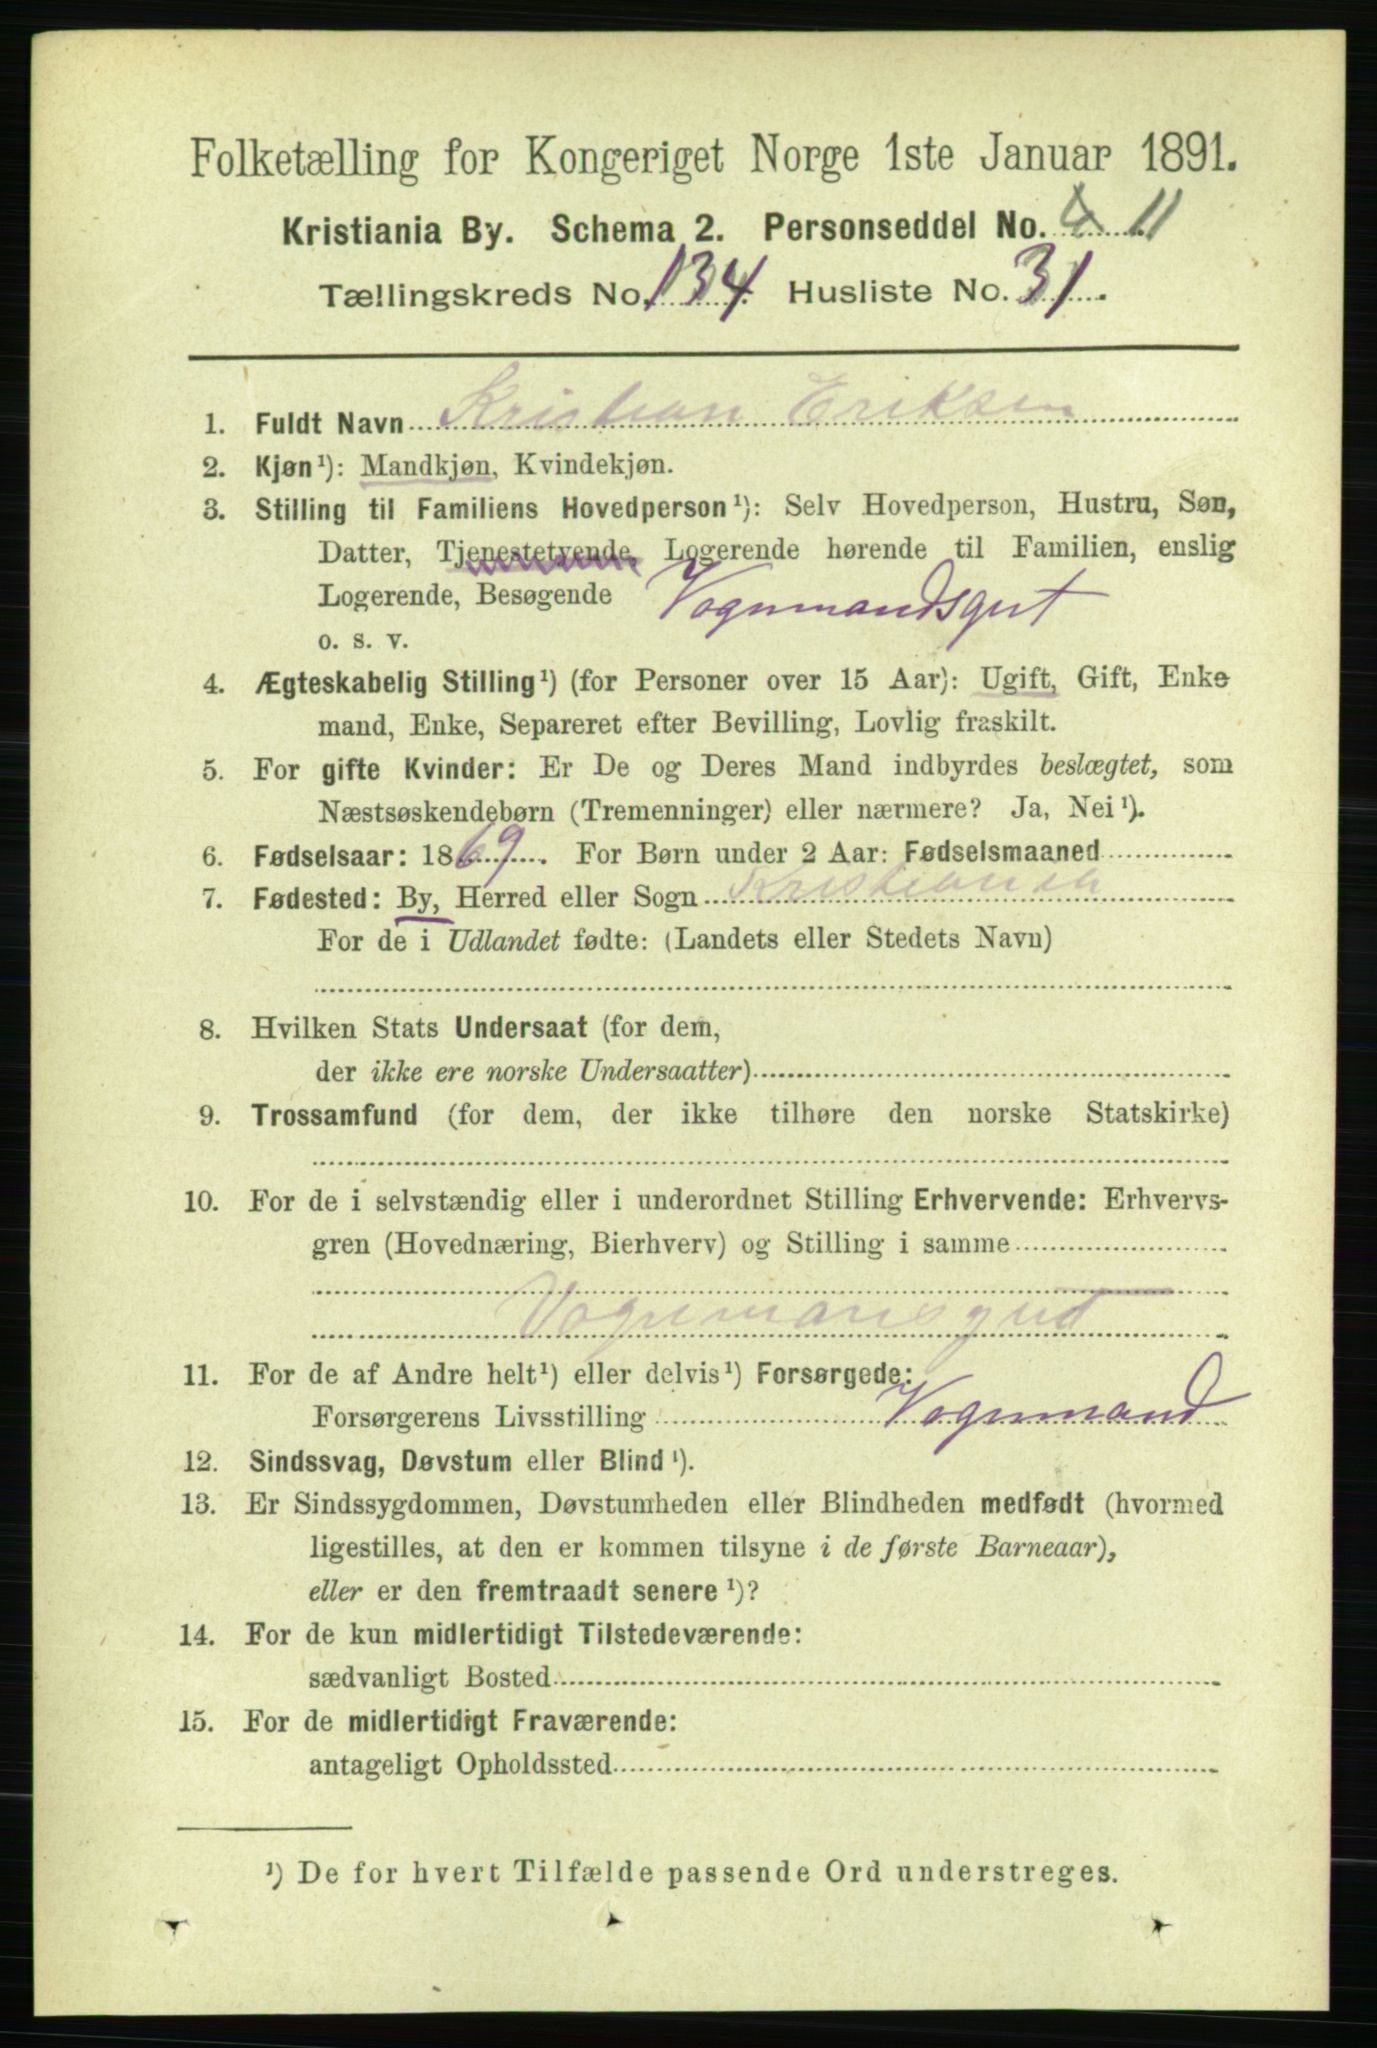 Folketælling for Kongeriget Norge 1ste Januar 1891.
Kristiania By. Schema 2. Personseddel No. 11
Tællingskreds No. 134 Husliste No. 31.
1. Fuldt Navn Kristian Eriksen
2. Kjøn¹): Mandkjøn, Kvindekjøn.
3. Stilling til Familiens Hovedperson¹): Selv Hovedperson, Hustru, Søn,
Datter, Tjenestetyende, Logerende hørende til Familien, enslig
Logerende, Besøgende Vognmandsgut
o. s. v.
4. Ægteskabelig Stilling¹) (for Personer over 15 Aar): Ugift, Gift, Enke
mand, Enke, Separeret efter Bevilling, Lovlig fraskilt.
5. For gifte Kvinder: Er De og Deres Mand indbyrdes beslægtet, som
Næstsøskendebørn (Tremenninger) eller nærmere? Ja, Nei¹).
6. Fødselsaar: 1869. For Børn under 2 Aar: Fødselsmaaned
7. Fødested: By, Herred eller Sogn Kristiania
For de i Udlandet fødte: (Landets eller Stedets Navn)
8. Hvilken Stats Undersaat (for dem,
der ikke ere norske Undersaatter)
9. Trossamfund (for dem, der ikke tilhøre den norske Statskirke)
10. For de i selvstændig eller i underordnet Stilling Erhvervende: Erhvervs-
gren (Hovednæring, Bierhverv) og Stilling i samme
Vognmansgut
11. For de af Andre helt¹) eller delvis¹) Forsørgede:
Forsørgerens Livsstilling Vognmand
12. Sindssvag, Døvstum eller Blind¹).
13. Er Sindssygdommen, Døvstumheden eller Blindheden medfødt (hvormed
ligestilles, at den er kommen tilsyne i de første Barneaar),
eller er den fremtraadt senere¹)?
14. For de kun midlertidigt Tilstedeværende:
sædvanligt Bosted
15. For de midlertidigt Fraværende:
antageligt Opholdssted
¹) De for hvert Tilfælde passende Ord understreges.